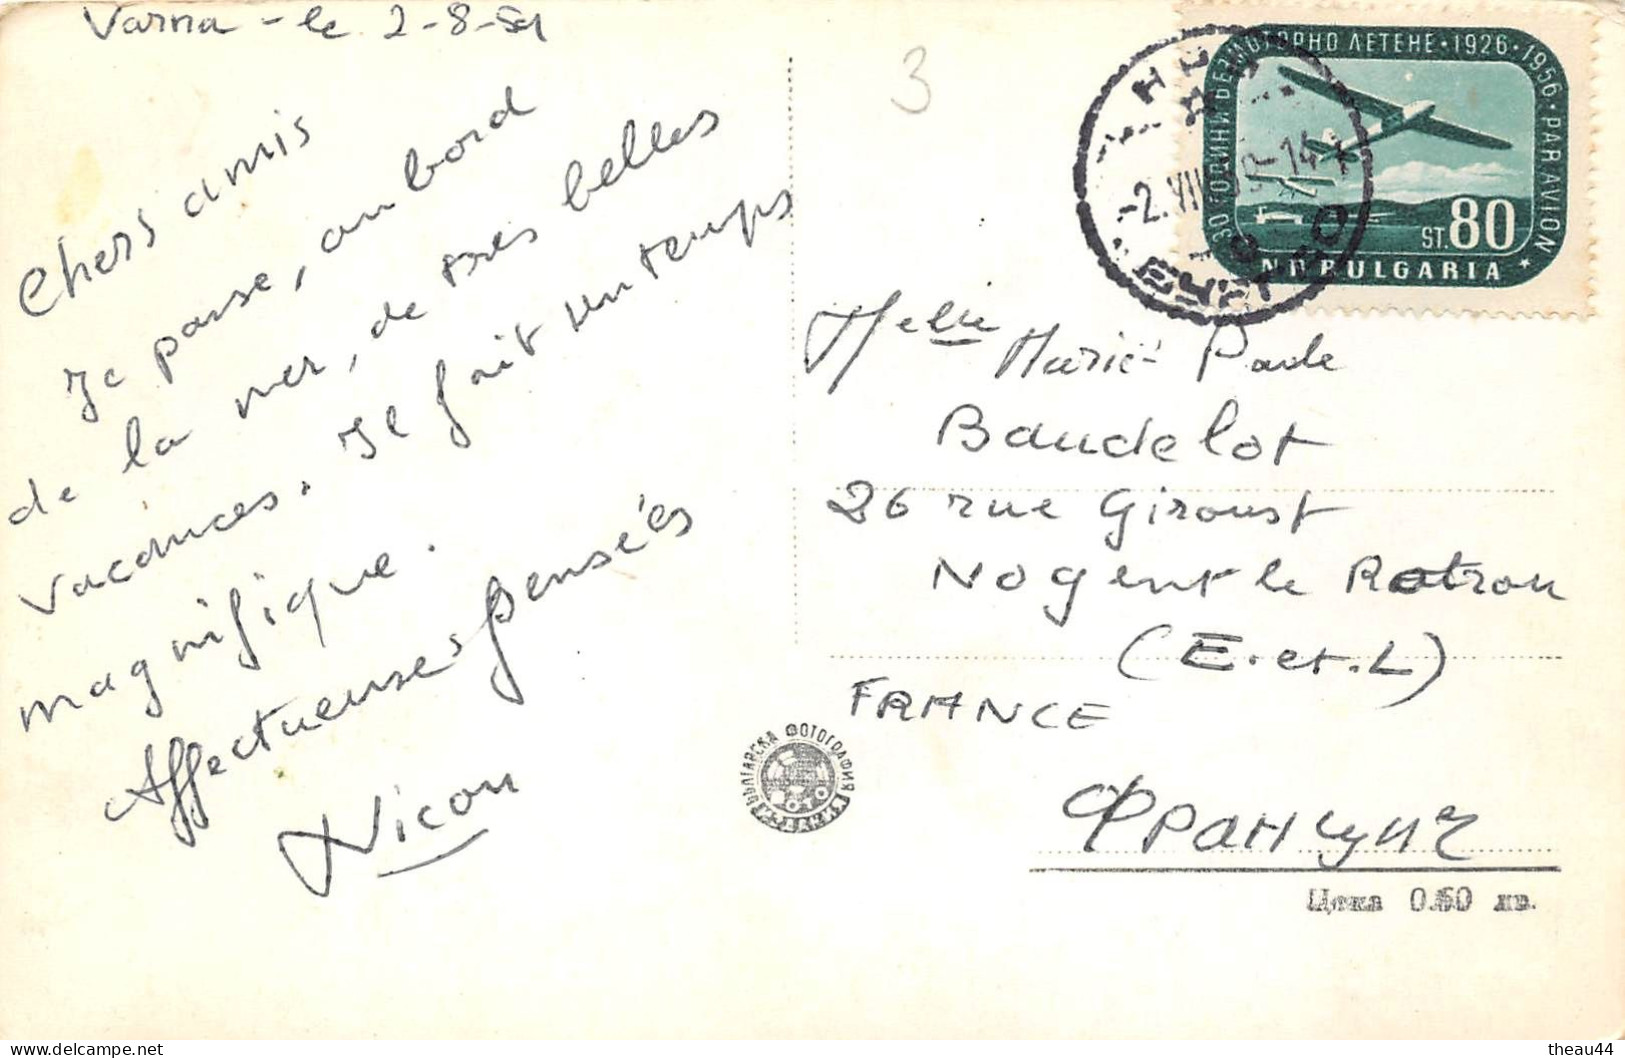 Varna - le 2-8-59
Chers amis
Je passe, au bord
de la mer, de très belles
vacances. Il fait un temps
magnifique.
Affectueuses pensées
Nicou
3
30 ГОДИНИ БЕЗМОТОРНО ЛЕТЕНЕ · 1926 · 1956 · PAR AVION
ST. 80
NR BULGARIA
-2.VIII
-14
Melle Marie-Paule
Baudelot
26 rue Giroust
Nogent le Rotrou
(E. et. L)
FRANCE
БЪЛГАРСКА ФОТОГРАФИЯ
ФОТО
Цена 0.60 лв.